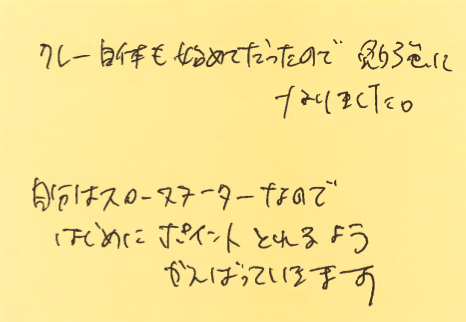 クレー自体も始めてだったので 勉強に
なりました。
自分はスロースターターなので
はじめに ポイント とれるよう
がんばっていきます